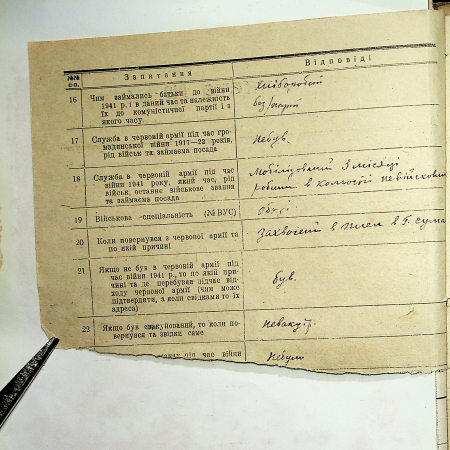 №№ пп.
Запитання
Відповіді
16
Чим займались батьки до війни
1941 р. і в даний час та належність
їх до комуністичної партії і з
якого часу.
Хліборобст
без/парт
17
Служба в червоній армії під час гро-
мадянської війни 1917—22 років,
рід військ та займаєма посада
небув
18
Служба в червоній армії під час
війни 1941 року, який час, рід
військ, останнє військове звання
та займаєма посада
Мобілізований 3 місяці
робит в
19
Військова специальність (№ ВУС)
20
Коли повернувся з червоної армії та
по якій причині
в в г. Сума
21
Якщо не був в червоній армії під
час війни 1941 р., то по якій при-
чині та де перебував підчас від-
ходу червоної армії (чим може
підтвердити, а коли свідками то їх
адреса)
був,
22
Якщо був евакуйований, то коли по-
вернувся та звідки саме
під час війни
небули